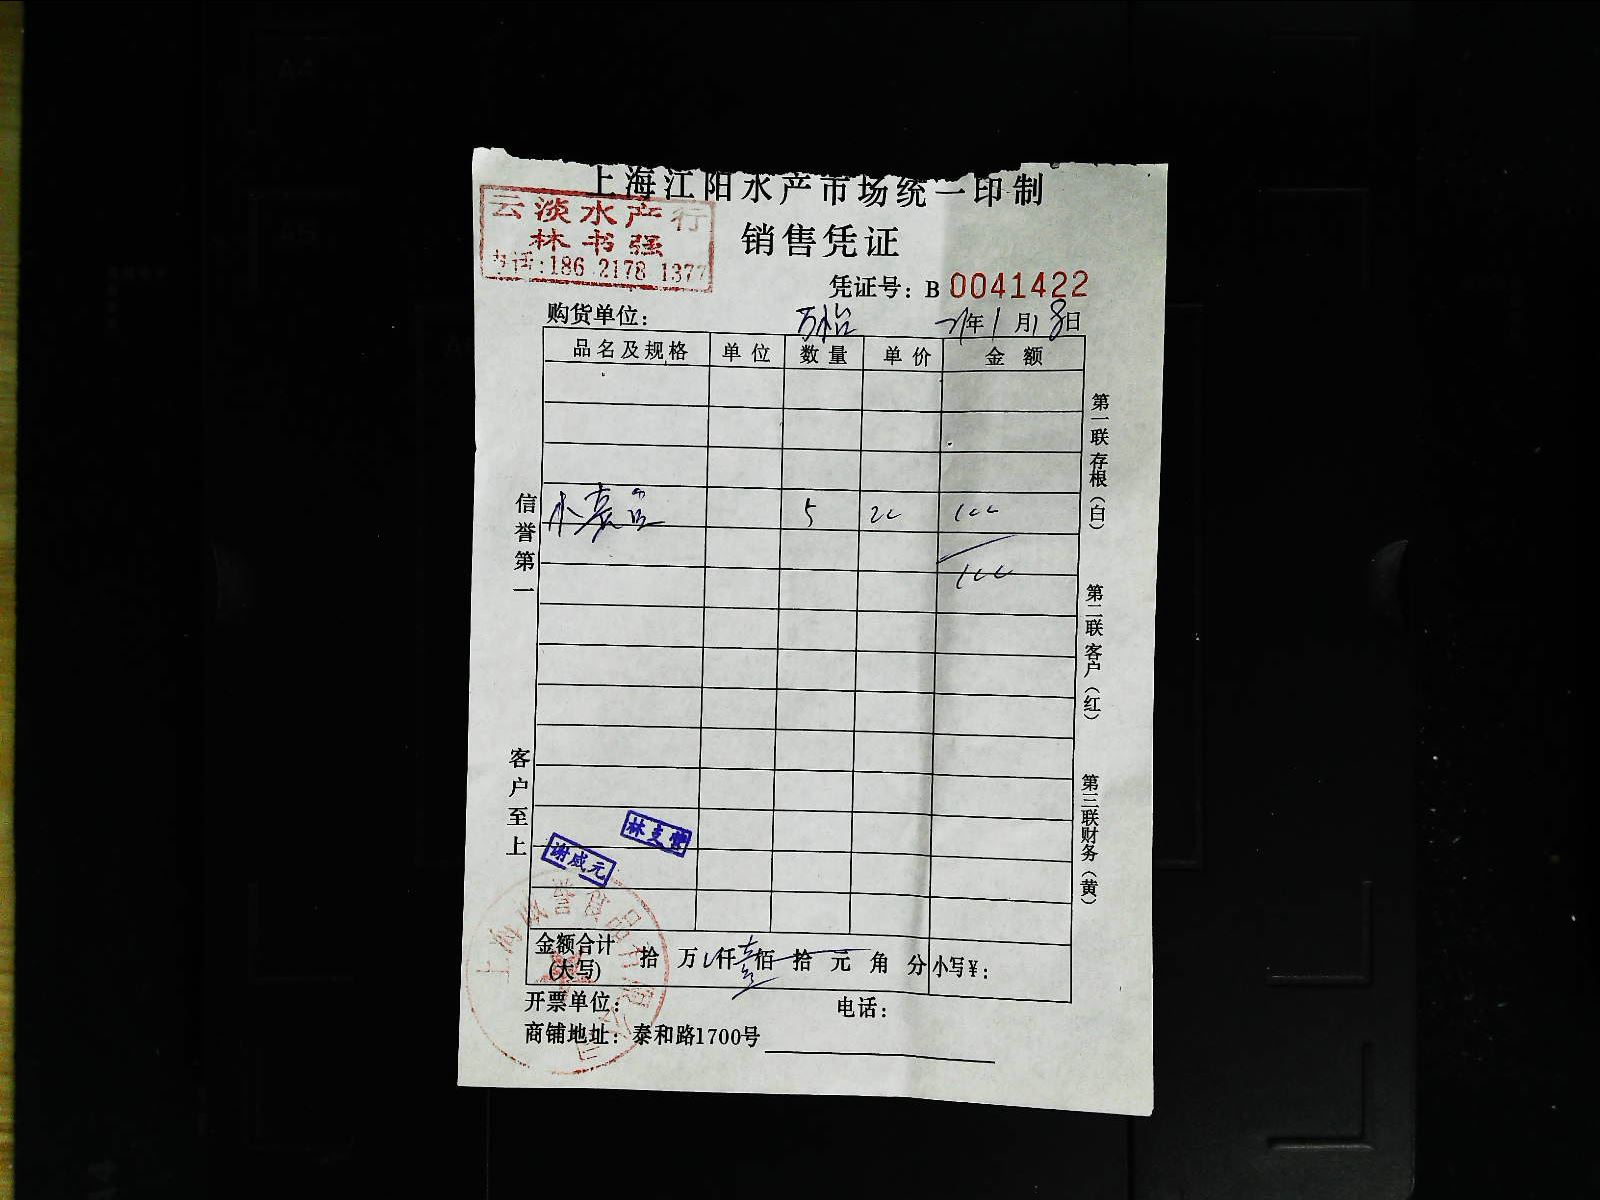 上海江阳水产市场统一印制
云淡水产行
林书强
电话:186 2178 1377
销售凭证
凭证号：B 0041422
购货单位： 万怡 21年1月18日
品名及规格 单位 数量 单价 金额
5 20 100
100
信誉第一
客户至上
第一联存根（白）
第二联客户（红）
第三联财务（黄）
谢威元
金额合计(大写) 拾 万 仟 壹佰 拾 元 角 分 小写¥：
开票单位： 电话：
商铺地址：泰和路1700号